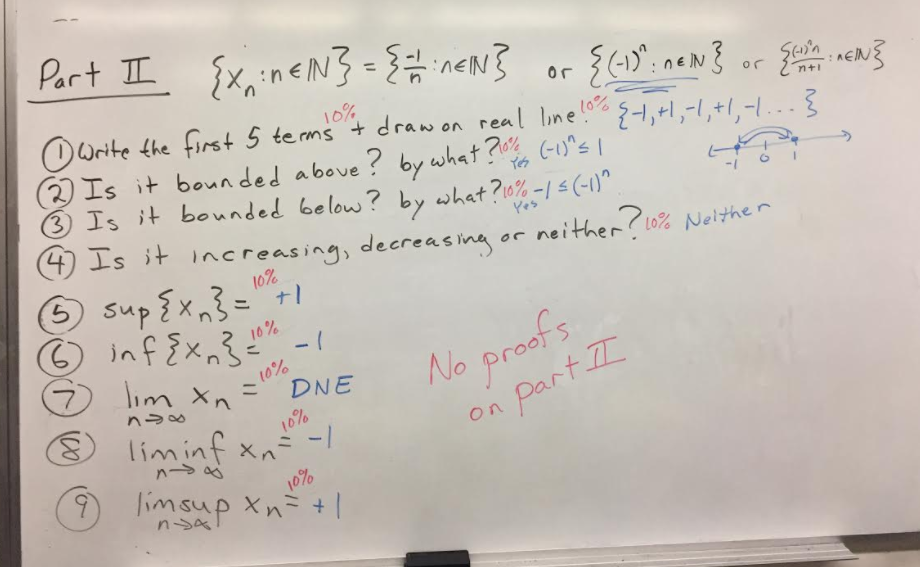 Part II {xₙ : n ∈ ℕ} = {-1/n : n ∈ ℕ} or {(-1)ⁿ : n ∈ ℕ} or {(-1)ⁿn/n+1 : n ∈ ℕ}
① Write the first 5 terms 10% + draw on real line. 10% {-1, +1, -1, +1, -1 ... }
-1 0 1
② Is it bounded above? by what? 10% Yes (-1)ⁿ ≤ 1
③ Is it bounded below? by what? 10% Yes -1 ≤ (-1)ⁿ
④ Is it increasing, decreasing or neither? 10% Neither
⑤ sup {xₙ} = 10% +1
⑥ inf {xₙ} = 10% -1
⑦ lim n→∞ xₙ = 10% DNE
⑧ liminf n→∞ xₙ = 10% -1
⑨ limsup n→∞ xₙ = 10% +1
No proofs
on part II